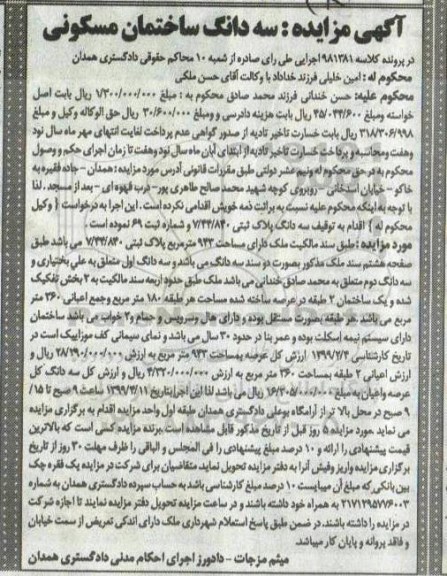 آگهی مزایده : سه دانگ ساختمان مسکونی
در پرونده کلاسه ۹۸۱۳۸۱ اجرایی طی رای صادره از شعبه ۱۰ محاکم حقوقی دادگستری همدان
محکوم له : امین خلیلی فرزند خداداد با وکالت آقای حسن ملکی
محکوم علیه: حسن خندانی فرزند محمد صادق محکوم به : مبلغ ۱/۳۰۰/۰۰۰/۰۰۰ ریال بابت اصل
خواسته ومبلغ ۴۵/۰۴۴/۶۰۰ ریال بابت هزینه دادرسی و ومبلغ ۳۰/۶۰۰/۰۰۰ ریال حق الوکاله وکیل و مبلغ
۳۱۸/۳۰۶/۹۹۸ ریال بابت خسارت تاخیر تادیه از صدور گواهی عدم پرداخت لغایت انتهای مهر ماه سال نود
وهفت ومحاسبه و پرداخت خسارت تاخیر تادیه از ابتدای آبان ماه سال نود وهفت تا زمان اجرای حکم و وصول
محکوم به در حق محکوم له ونیم عشر دولتی طبق مقررات قانونی آدرس مورد مزایده : همدان – جاده فقیره به
خاکو – خیابان استخانی – روبروی کوچه شهید محمد صالح طاهری پور– درب قهوه ای – بعد از مسجد . لذا
با توجه به اینکه محکوم علیه نسبت به برائت ذمه خویش اقدامی نکرده است . این اجرا به درخواست { وکیل
محکوم له } اقدام به توقیف سه دانگ پلاک ثبتی ۷/۴۴/۸۴۰ و شماره ثبت ۶۹ نموده است .
مورد مزایده : طبق سند مالکیت ملک دارای مساحت ۹۴۳ مترمربع پلاک ثبتی ۷/۴۴/۸۴۰ می باشد طبق
صفحه هشتم سند ملک مذکور بصورت دو سند سه دانگ می باشد و سه دانگ اول متعلق به علی بختیاری و
سه دانگ دوم متعلق به محمد صادق خندانی می باشد ملک طبق حدود اربعه سند مالکیت به ۲ بخش تفکیک
شده و یک ساختمان ۲ طبقه در عرصه ساخته شده مساحت هر طبقه ۱۸۰ متر مربع وجمع اعیانی ۳۶۰ متر
مربع می باشد .هر طبقه بصورت مستقل بوده و دارای هال وسرویس و حمام و۲ خواب می باشد ساختمان
دارای سیستم نیمه اسکلت بوده و عمر بنا در حدود ۳۰ سال می باشد و نمای سیمانی کف موزاییک است در
تاریخ کارشناسی ۱۳۹۹/۲/۴ ارزش کل عرصه بمساحت ۹۴۳ متر مربع به ارزش ۲۸/۲۹۰/۰۰۰/۰۰۰ ریال و
ارزش اعیانی ۲ طبقه بمساحت ۳۶۰ متر مربع به ارزش ۴/۳۲۰/۰۰۰/۰۰۰ ریال و ارزش کل سه دانگ کل
عرصه واعیان به مبلغ ۱۶/۳۰۵/۰۰۰/۰۰۰ ریال می باشد لذا این اجرا بتاریخ ۱۳۹۹/۳/۱۱ ساعت ۹ صبح تا ۹/۱۵
صبح در محل بالا تر از آرامگاه بوعلی دادگستری همدان طبقه اول واحد مزایده اقدام به برگزاری مزایده
می نماید .مورد مزایده ۵ روز قبل از تاریخ مذکور قابل مشاهده است .برنده مزایده کسی است که بالاترین
قیمت پیشنهادی را ارائه و ۱۰ درصد مبلغ پیشنهادی را فی المجلس و الباقی را ظرف مهلت ۳۰ روز از تاریخ
برگزاری مزایده واریز وفیش آنرا به دفتر مزایده تحویل نماید متقاضیان برای شرکت در مزایده یک فقره چک
بین بانکی که مبلغ آن میبایست ۱۰ درصد مبلغ کارشناسی باشد به حساب سپرده دادگستری همدان به شماره
۲۱۷۱۲۹۵۷۷۶۰۰۳ به همراه خود داشته باشند و در ساعت مزایده تحویل دفتر مزایده نمایند تا اجازه شرکت
در مزایده را داشته باشند. در ضمن طبق پاسخ استعلام شهرداری ملک دارای اندکی تعریض از سمت خیابان
و فاقد پروانه و پایان کار میباشد.
میثم مزجات – دادورز اجرای احکام مدنی دادگستری همدان